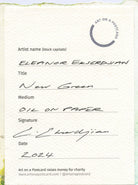 ART ON A POSTCARD
Artist name (block capitals)
ELEANOR EKSERDJIAN
Title
New Green
Medium
OIL ON PAPER
Signature
E Ekserdjian
Date
2024
Art on a Postcard raises money for charity
www.artonapostcard.com | @artonapostcard